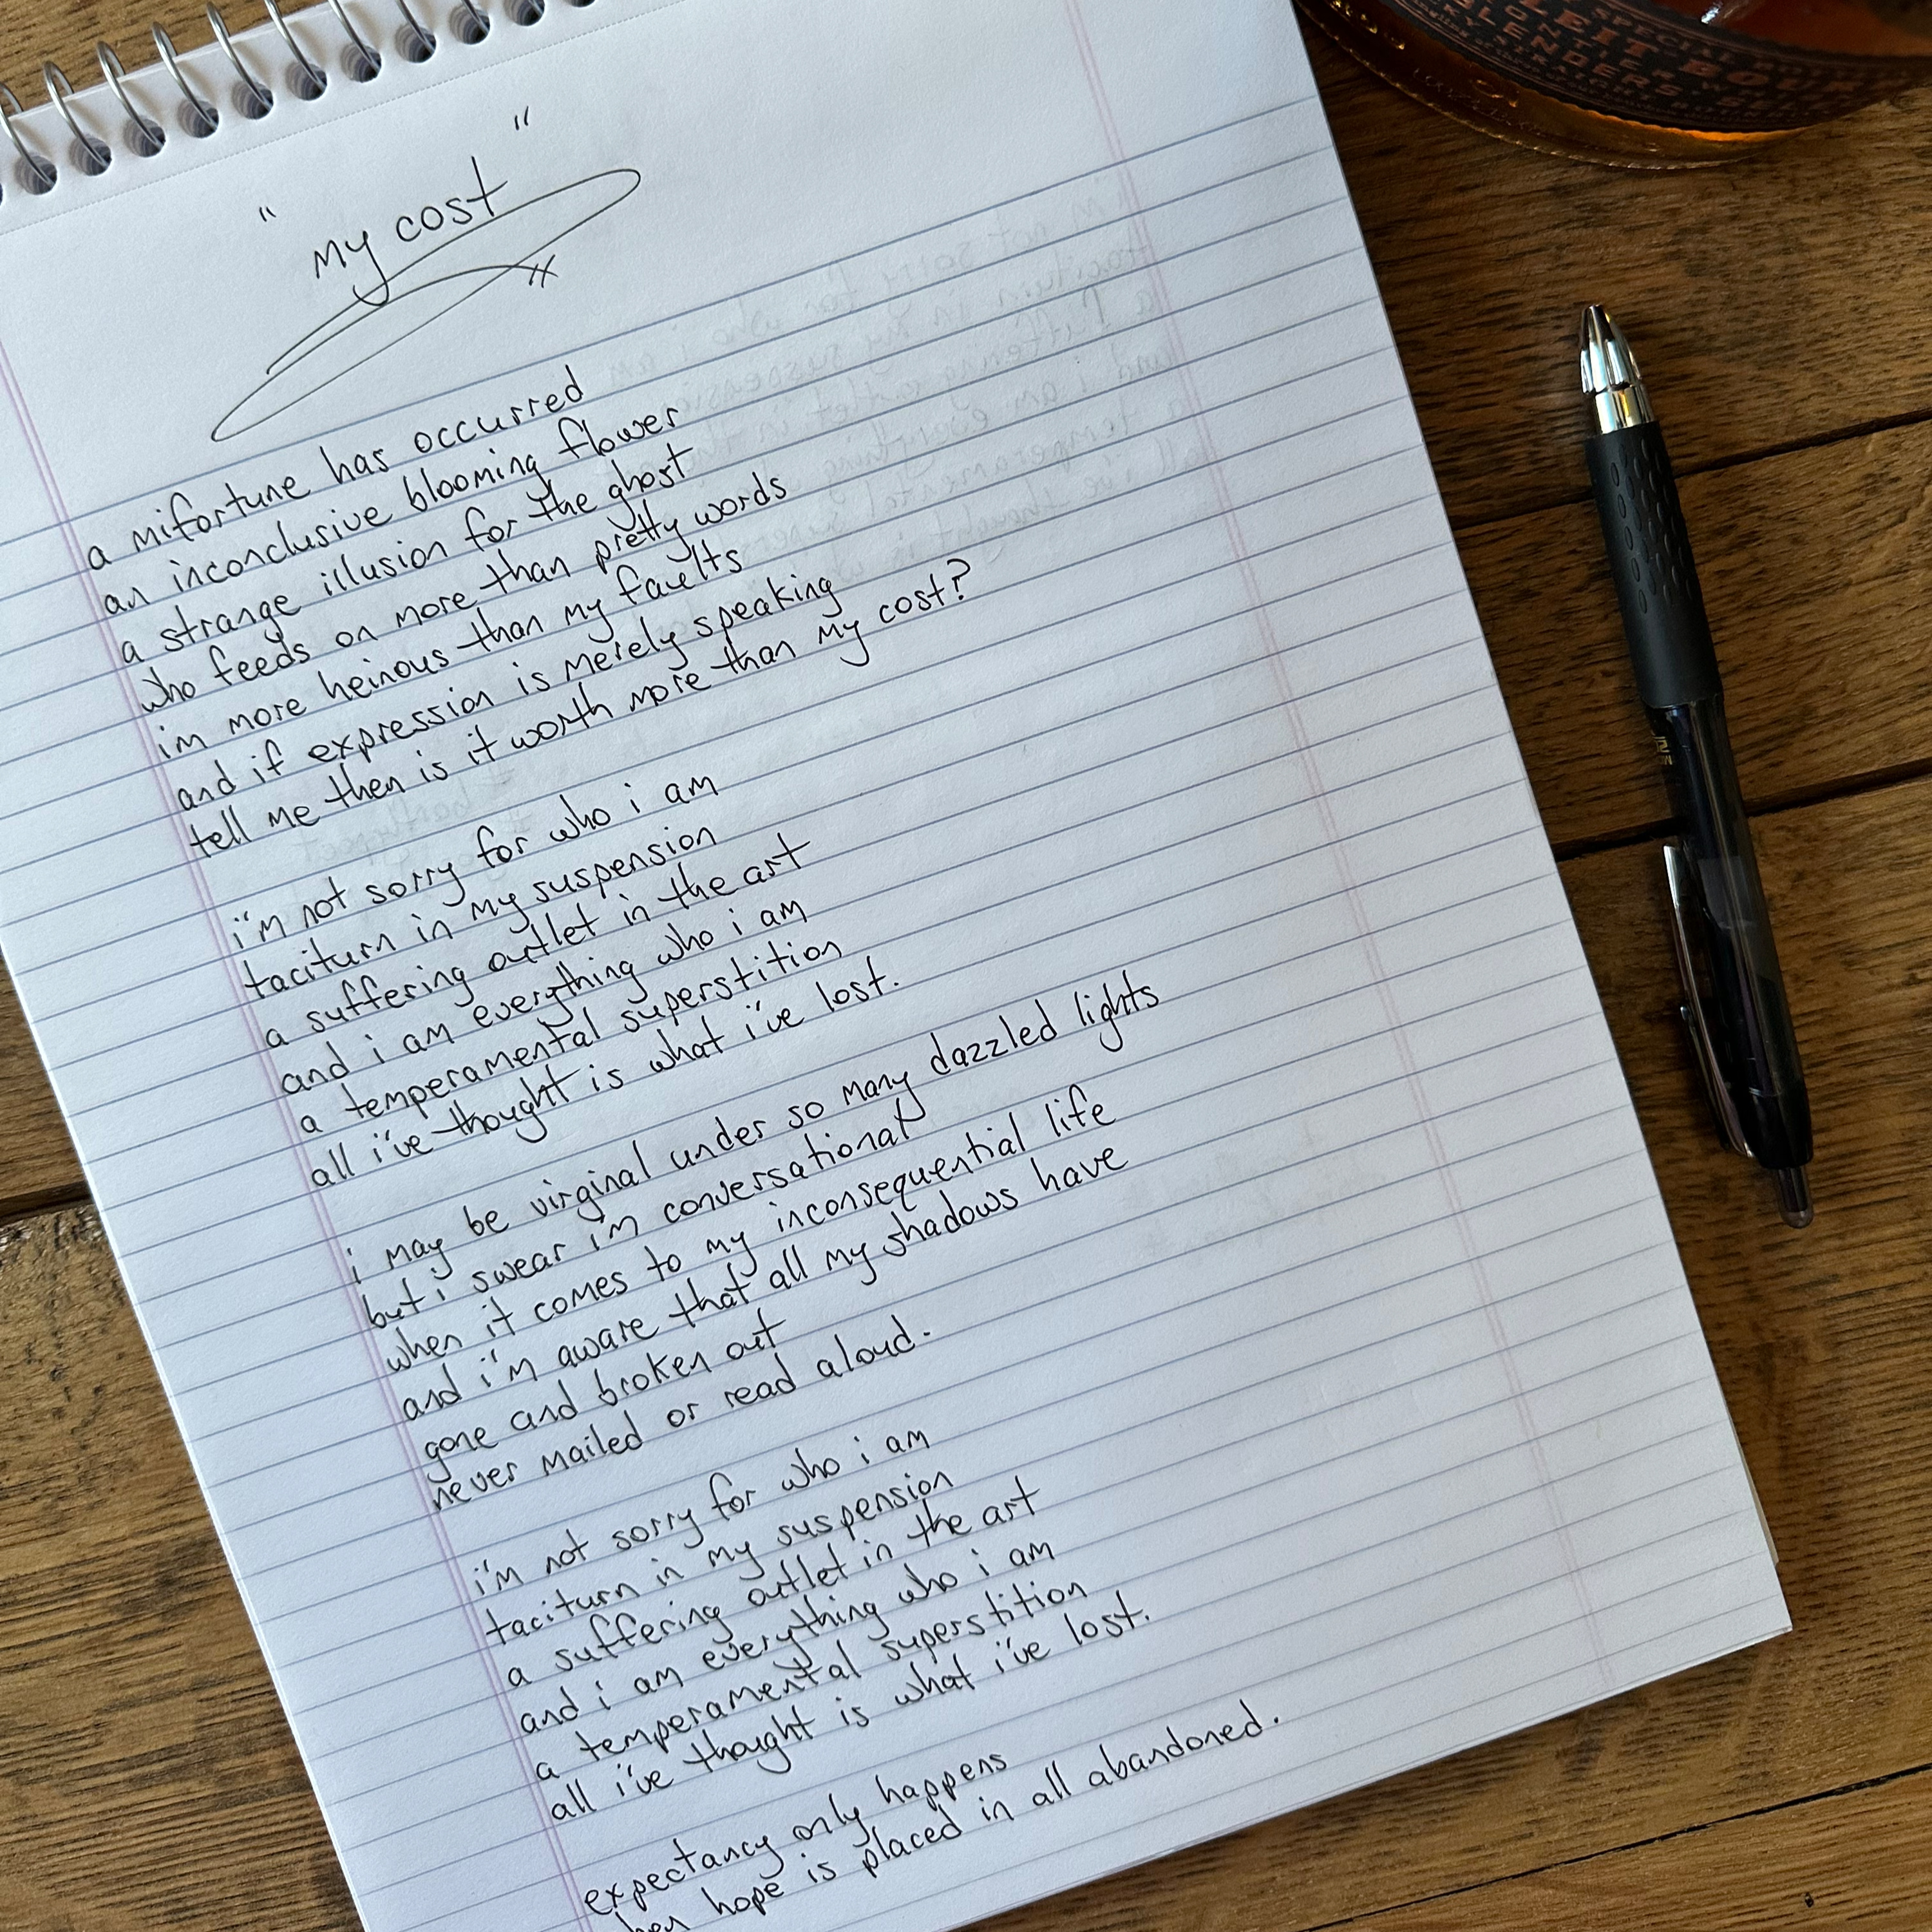 "my cost"
a mifortune has occurred
an inconclusive blooming flower
a strange illusion for the ghost
who feeds on more than pretty words
im more heinous than my faults
and if expression is merely speaking
tell me then is it worth more than my cost?
i'm not sorry for who i am
taciturn in my suspension
a suffering outlet in the art
and i am everything who i am
a temperamental superstition
all i've thought is what i've lost.
i may be virginal under so many dazzled lights
but i swear i'm conversational
when it comes to my inconsequential life
and i'm aware that all my shadows have
gone and broken out
never mailed or read aloud.
i'm not sorry for who i am
taciturn in my suspension
a suffering outlet in the art
and i am everything who i am
a temperamental superstition
all i've thought is what i've lost.
expectancy only happens
hope is placed in all abandoned.
BLENDERS